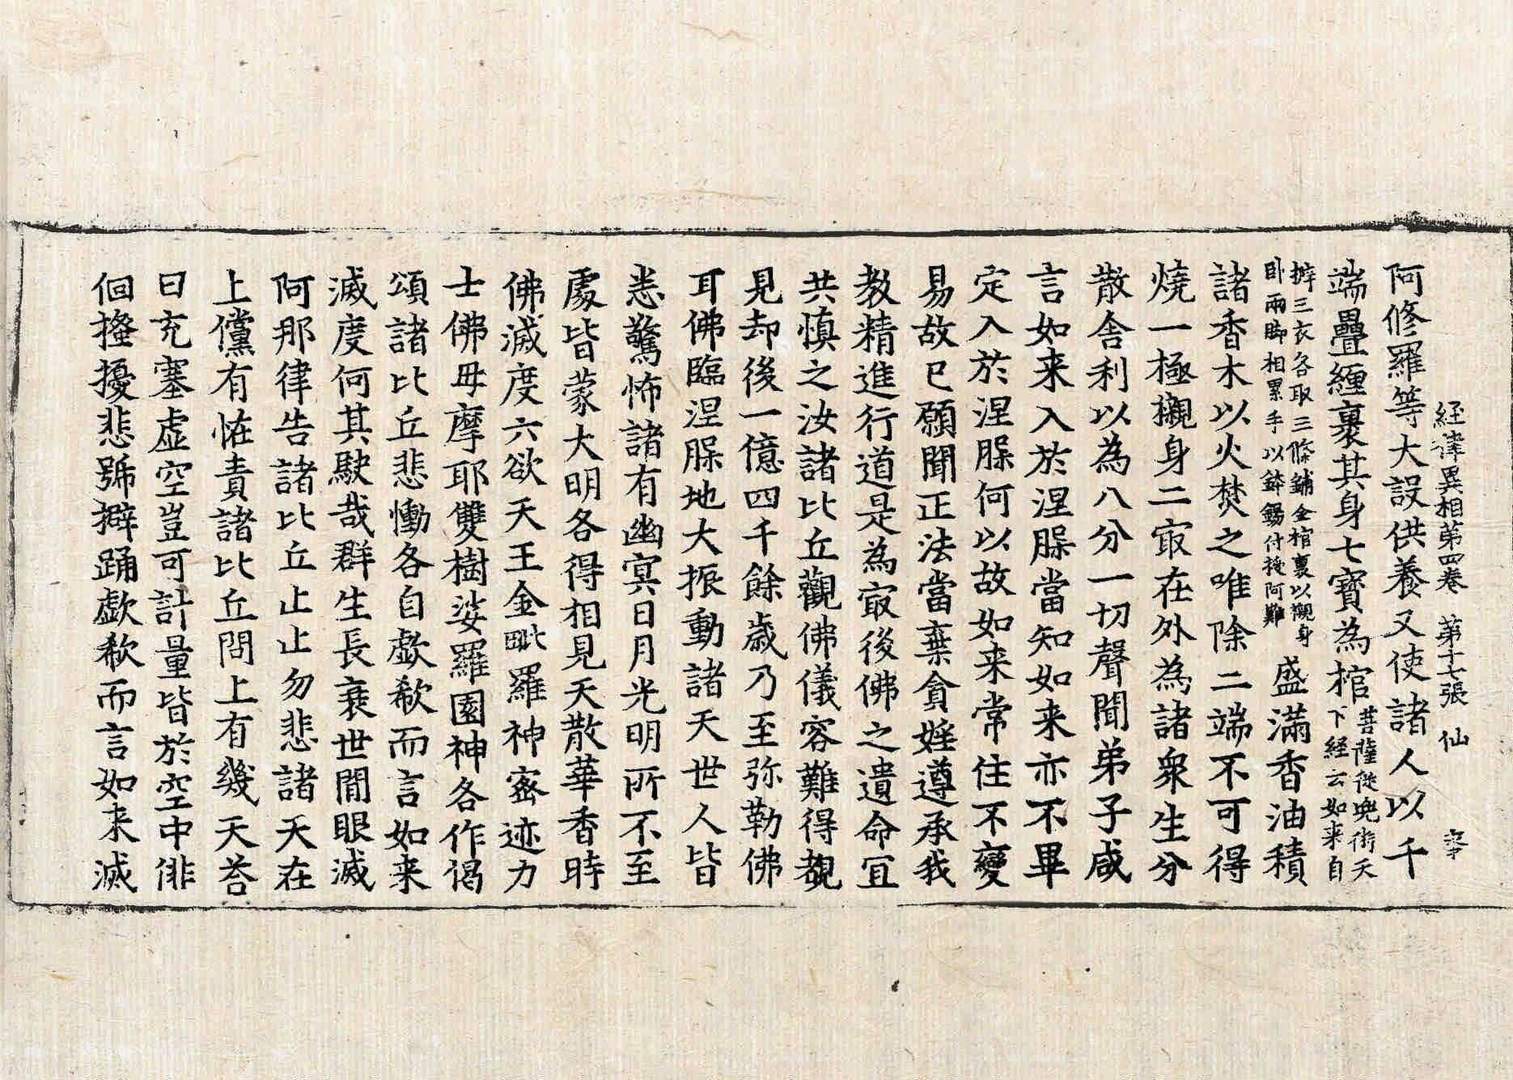 經律異相第四卷　第十七張　仙
阿修羅等大設供養又使諸人以千
端疊纏裹其身七寶為棺菩薩從兜術天下經云如来自
擗三衣各取三條鋪金棺裏以襯身卧兩脚相累手以鉢錫付授阿難盛滿香油積
諸香木以火焚之唯除二端不可得
燒一極襯身二㝡在外為諸衆生分
散舍利以為八分一切聲聞弟子咸
言如来入於涅槃當知如来亦不畢
定入於涅槃何以故如来常住不變
易故已願聞正法當棄貪婬遵承我
教精進行道是為㝡後佛之遺命宜
共慎之汝諸比丘觀佛儀容難得覩
見却後一億四千餘歲乃至弥勒佛
耳佛臨涅槃地大振動諸天世人皆
悉驚怖諸有幽冥日月光明所不至
處皆蒙大明各得相見天散華香時
佛滅度六欲天王金毗羅神密迹力
士佛母摩耶雙樹娑羅園神各作偈
頌諸比丘悲慟各自歔欷而言如来
滅度何其駛哉群生長衰世間眼滅
阿那律告諸比丘止止勿悲諸天在
上儻有恠責諸比丘問上有幾天荅
曰充塞虛空豈可計量皆於空中徘
徊搔擾悲號擗踊歔欷而言如来滅